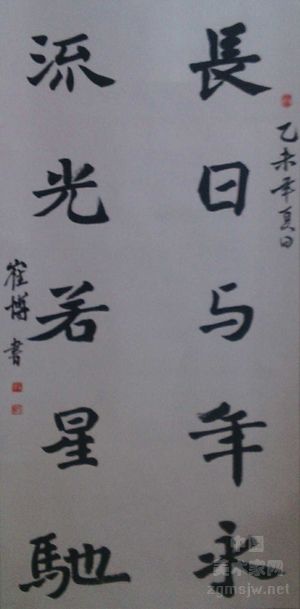 乙未年夏日
長日与年永
流光若星馳
崔博書
中国
美术家网
zgmsjw.net